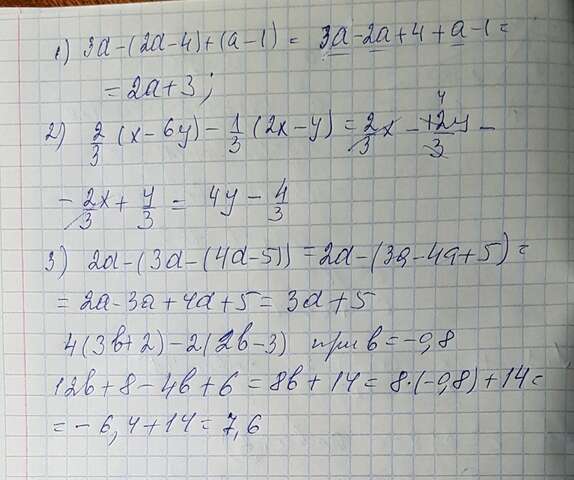 1) 3a-(2a-4)+(a-1) = 3a-2a+4+a-1 =
= 2a+3;
2) 2/3 (x-6y) - 1/3 (2x-y) = 2/3 x - 12y/3 -
- 2/3 x + y/3 = 4y - 4/3
3) 2a-(3a-(4a-5)) = 2a-(3a-4a+5) =
= 2a-3a+4a+5 = 3a+5
4(3b+2)-2(2b-3) при b=-0,8
12b+8-4b+6 = 8b+14 = 8·(-0,8)+14 =
= -6,4+14 = 7,6